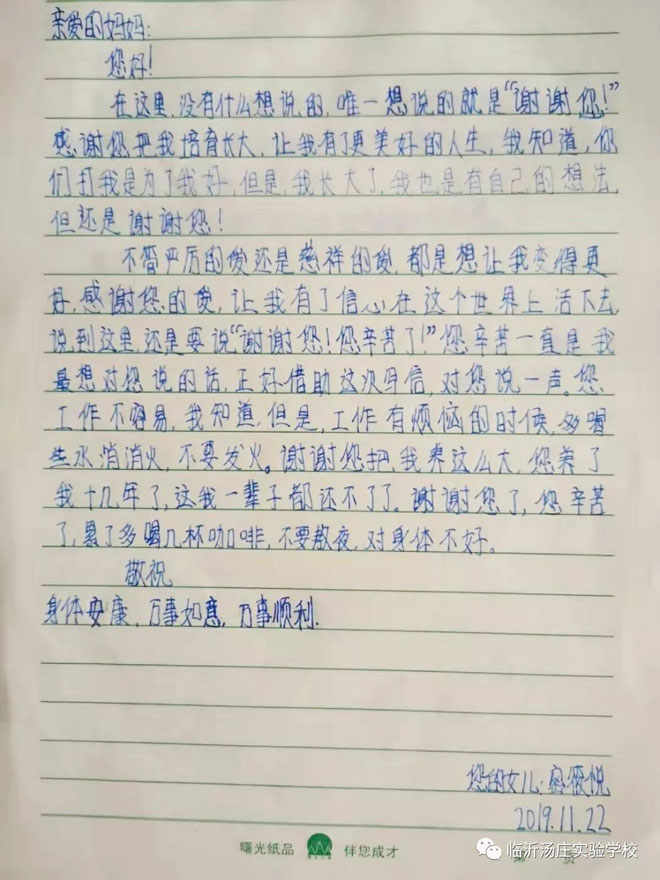 亲爱的妈妈：
您好！
在这里，没有什么想说的，唯一想说的就是“谢谢您！”
感谢您把我培育长大，让我有了更美好的人生，我知道，你
们打我是为了我好，但是，我长大了，我也是有自己的想法，
但还是谢谢您！
不管严厉的爱还是慈祥的爱，都是想让我变得更
好，感谢您的爱，让我有了信心在这个世界上活下去，
说到这里，还是要说“谢谢您！您辛苦了！”您辛苦一直是我
最想对您说的话，正好借助这次写信，对您说一声。您
工作不容易，我知道，但是，工作有烦恼的时候，多喝
些水消消火，不要发火。谢谢您把，我养这么大，您养了
我十几年了，这我一辈子都还不了了。谢谢您了，您辛苦
了，累了多喝几杯咖啡，不要熬夜，对身体不好。
敬祝
身体安康，万事如意，万事顺利.
您的女儿：悦
2019.11.22
曙光纸品 伴您成才
第 页
临沂汤庄实验学校